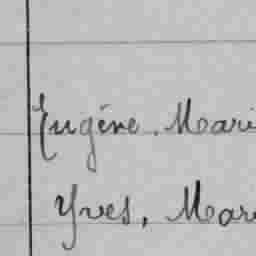 Eugène, Mari
Yves, Mari